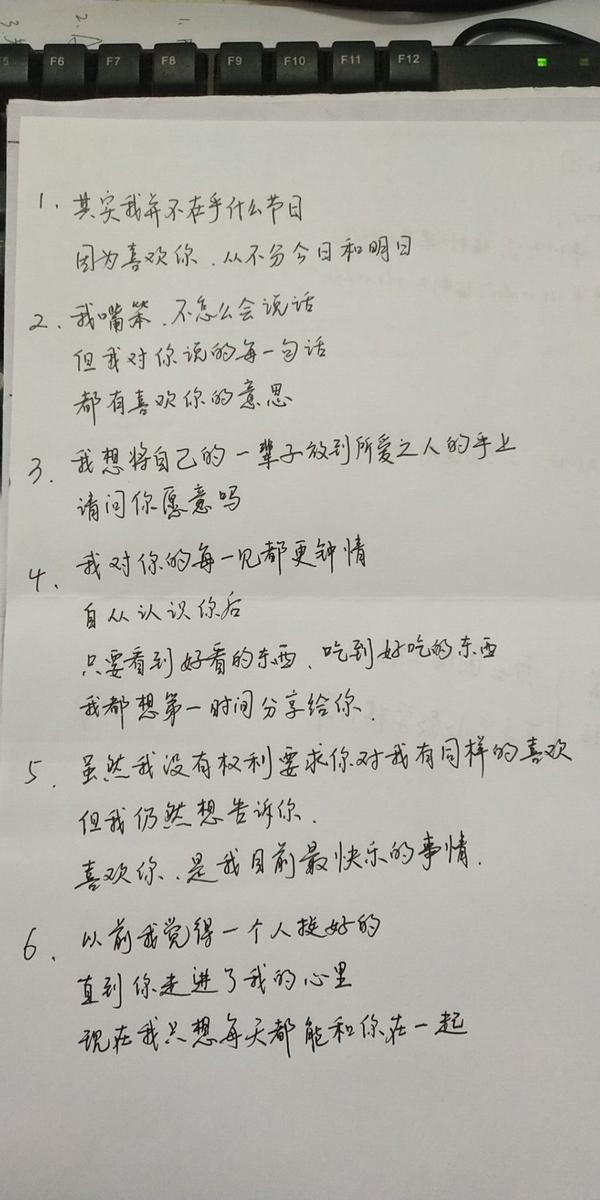 F6 F7 F8 F9 F10 F11 F12
1. 其实我并不在乎什么节日
因为喜欢你.从不分今日和明日
2. 我嘴笨.不怎么会说话
但我对你说的每一句话
都有喜欢你的意思
3. 我想将自己的一辈子放到所爱之人的手上
请问你愿意吗
4. 我对你的每一见都更钟情
自从认识你后
只要看到好看的东西、吃到好吃的东西
我都想第一时间分享给你.
5. 虽然我没有权利要求你对我有同样的喜欢
但我仍然想告诉你.
喜欢你.是我目前最快乐的事情.
6. 以前我觉得一个人挺好的
直到你走进了我的心里
现在我只想每天都能和你在一起